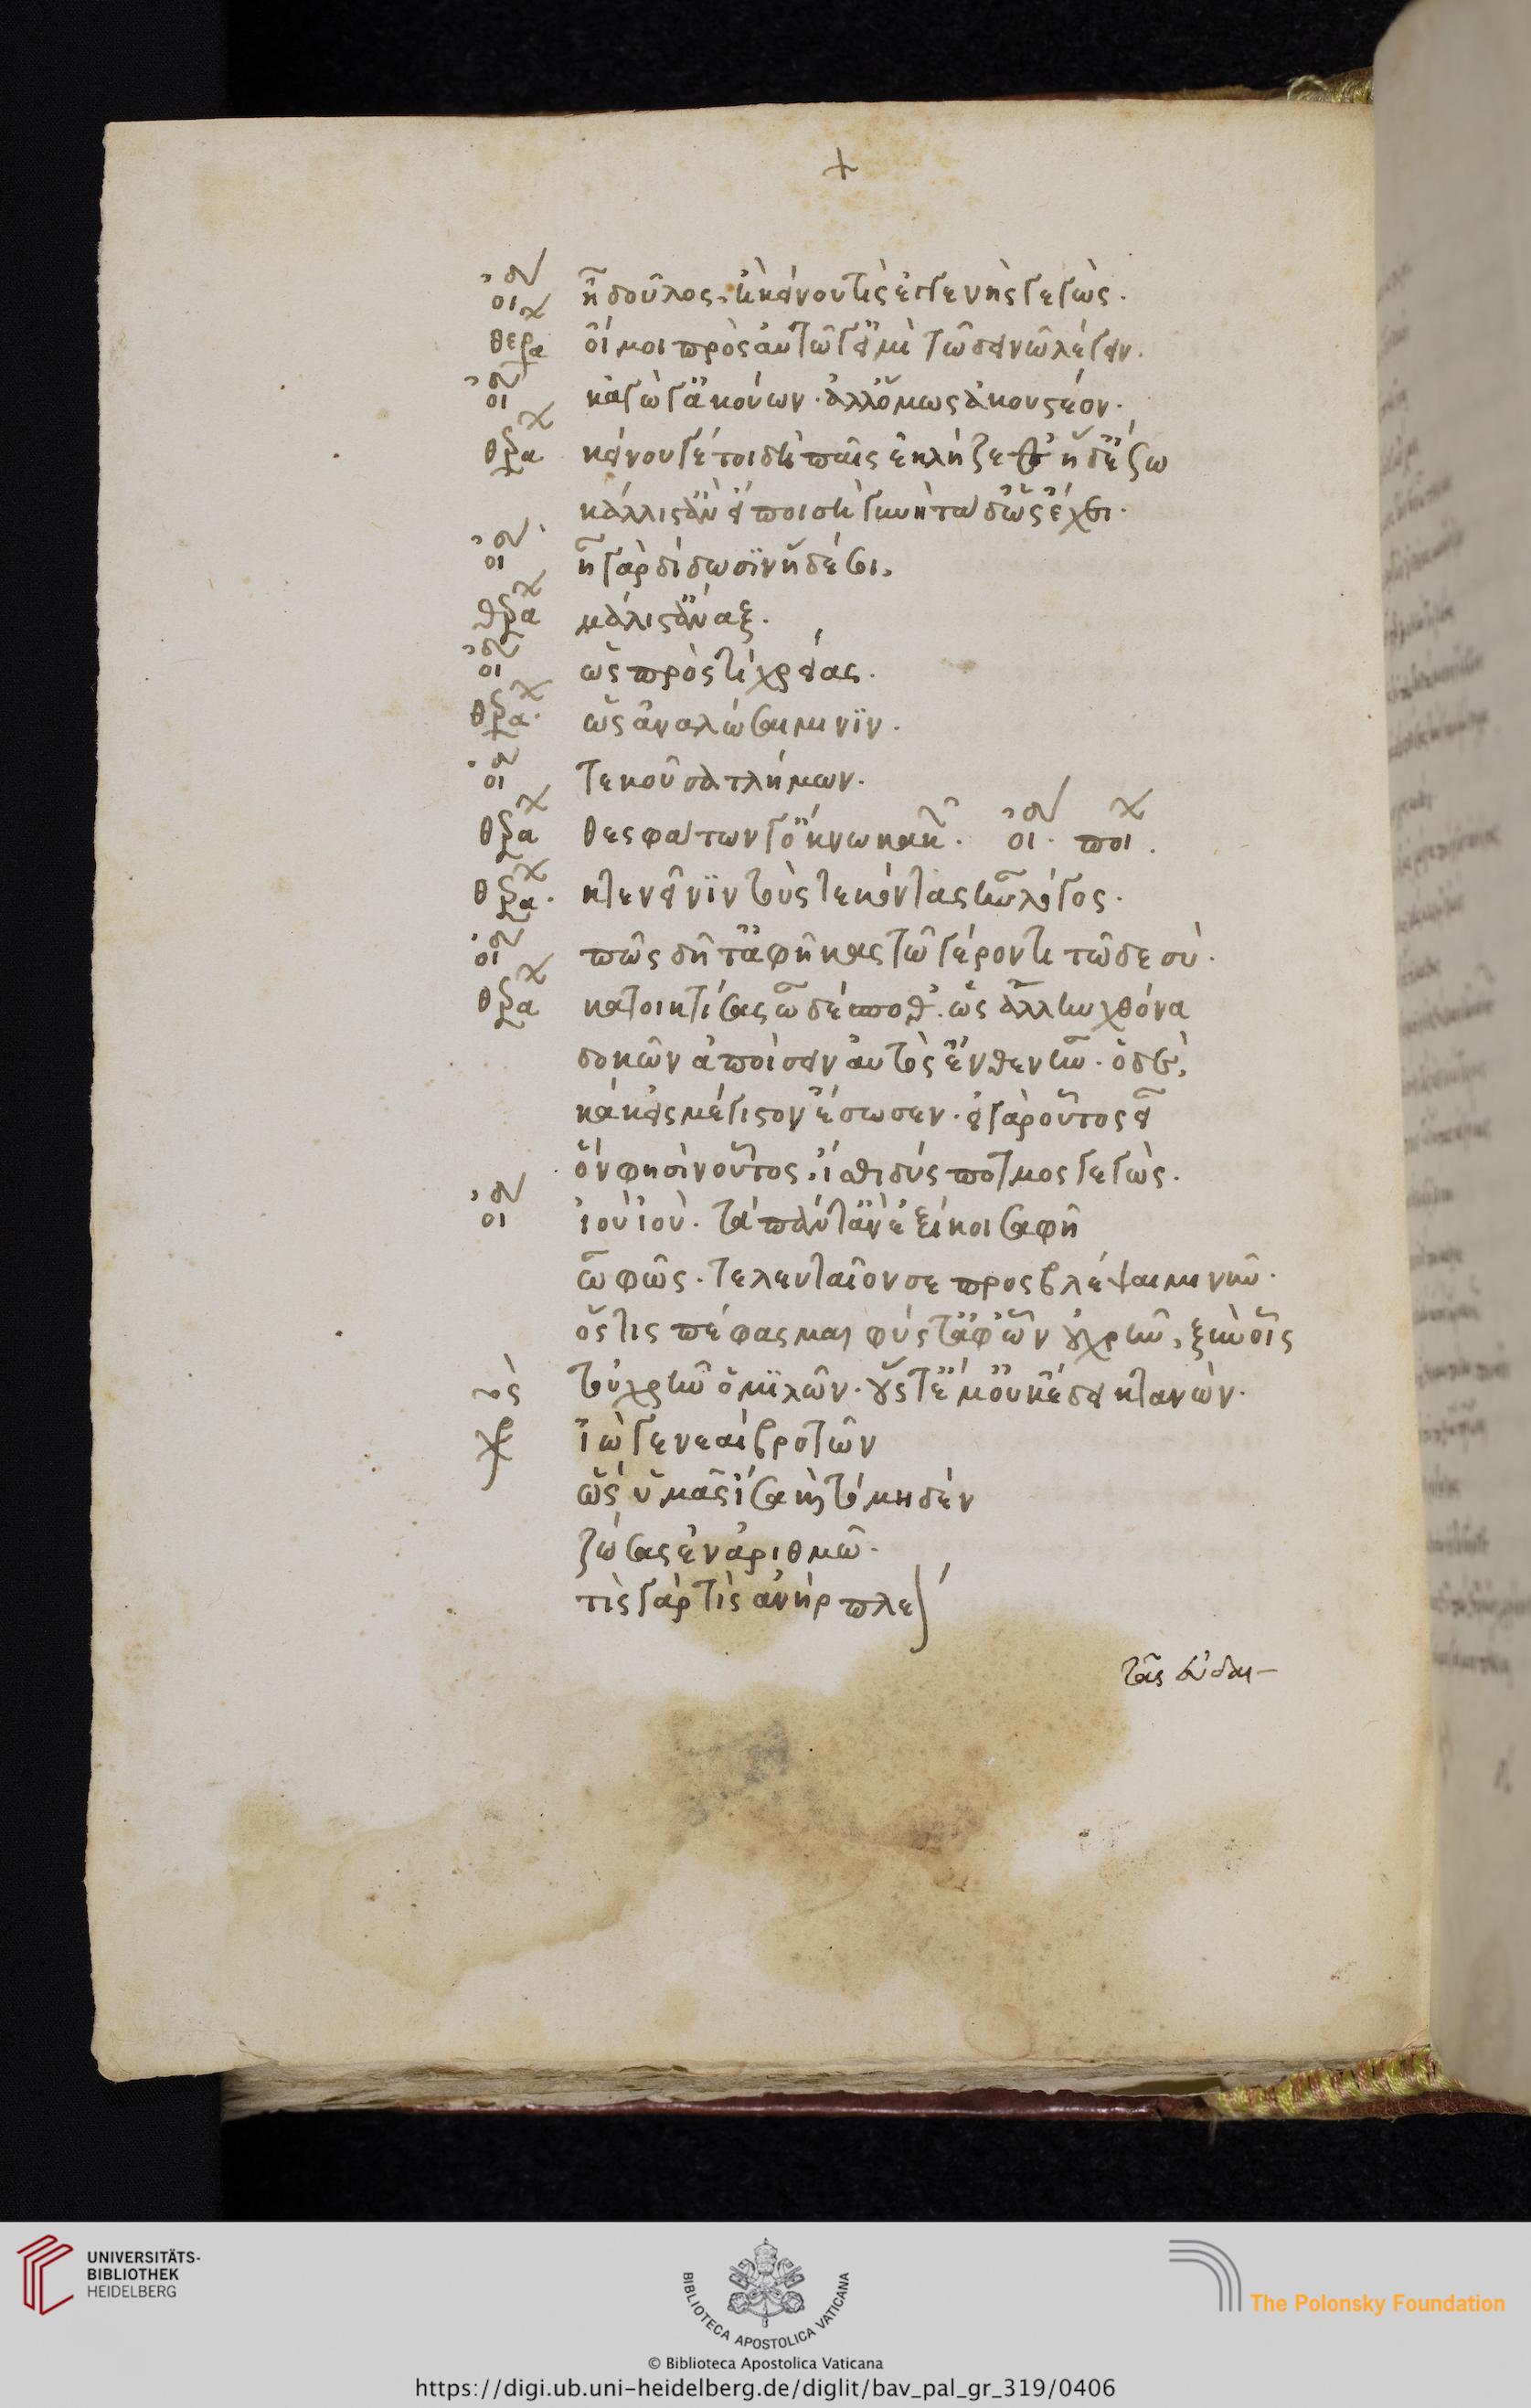 +
οιδ ἢ δοῦλος, ἢ κείνου τὶς ἐγγενὴς γεγώς.
θερα οἴμοι πρὸς αὐτῶ γ' εἰμὶ τῶ δεινῶ λέγειν.
οιδ κἄγωγ' ἀκούων. ἀλλ' ὅμως ἀκουστέον.
θερα κείνου γέ τοι δὴ παῖς ἐκλήζετο ἡ δ' ἔσω
κάλλιστ' ἂν εἴποι σὴ γυνὴ τάδ' ὡς ἔχει.
οιδ ἦ γὰρ δίδωσιν ἥδε σοι,
θερα μάλιστ' ἄναξ.
οιδ ὡς πρὸς τί χρείας.
θερα ὡς ἀναλώσαιμί νιν.
οιδ τεκοῦσα τλήμων.
θερα θεσφάτων γ' ὄκνω κακῶν. οιδ. ποῖ.
θερα. κτενεῖν νιν τοὺς τεκόντας ἦν λόγος.
οιδ πῶς δῆτ' ἀφῆκας τῶ γέροντι τῶδε σύ.
θερα κατοικτίσας ὦ δέσποθ'. ὡς ἄλλην χθόνα
δοκῶν ἀποίσειν αὐτὸς ἔνθεν ἦν. ὁ δὲ,
κάκ' εἰς μέγιστον ἔσωσεν. εἰ γὰρ οὗτος εἶ
ὅν φησιν οὗτος, ἴσθι δύσποτμος γεγώς.
οιδ ἰοὺ ἰού. τὰ πάντ' ἂν ἐξίκοι σαφῆ
ὦ φῶς. τελευταῖόν σε προσβλέψαιμι νῦν.
ὅστις πέφασμαι φύς τ' ἀφ' ὧν οὐ χρῆν, ξὺν οἷς
τ' οὐ χρῆν ὁμιλῶν. οὕς τέ μ' οὐκ ἔδει κτανών.
χο ἰὼ γενεαὶ βροτῶν
ὡς ὑμᾶς ἴσα καὶ τὸ μηδὲν
ζώσας ἐναριθμῶ.
τίς γὰρ τίς ἀνὴρ πλέ
τᾶς εὐδαι-
UNIVERSITÄTS-
BIBLIOTHEK
HEIDELBERG
BIBLIOTECA APOSTOLICA VATICANA
The Polonsky Foundation
© Biblioteca Apostolica Vaticana
https://digi.ub.uni-heidelberg.de/diglit/bav_pal_gr_319/0406